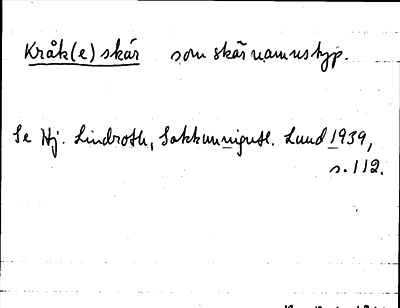 Kråk(e)skär som skärnamnstyp.
Se Hj. Lindroth, Sakkunnigutl. Lund 1939,
s. 112.